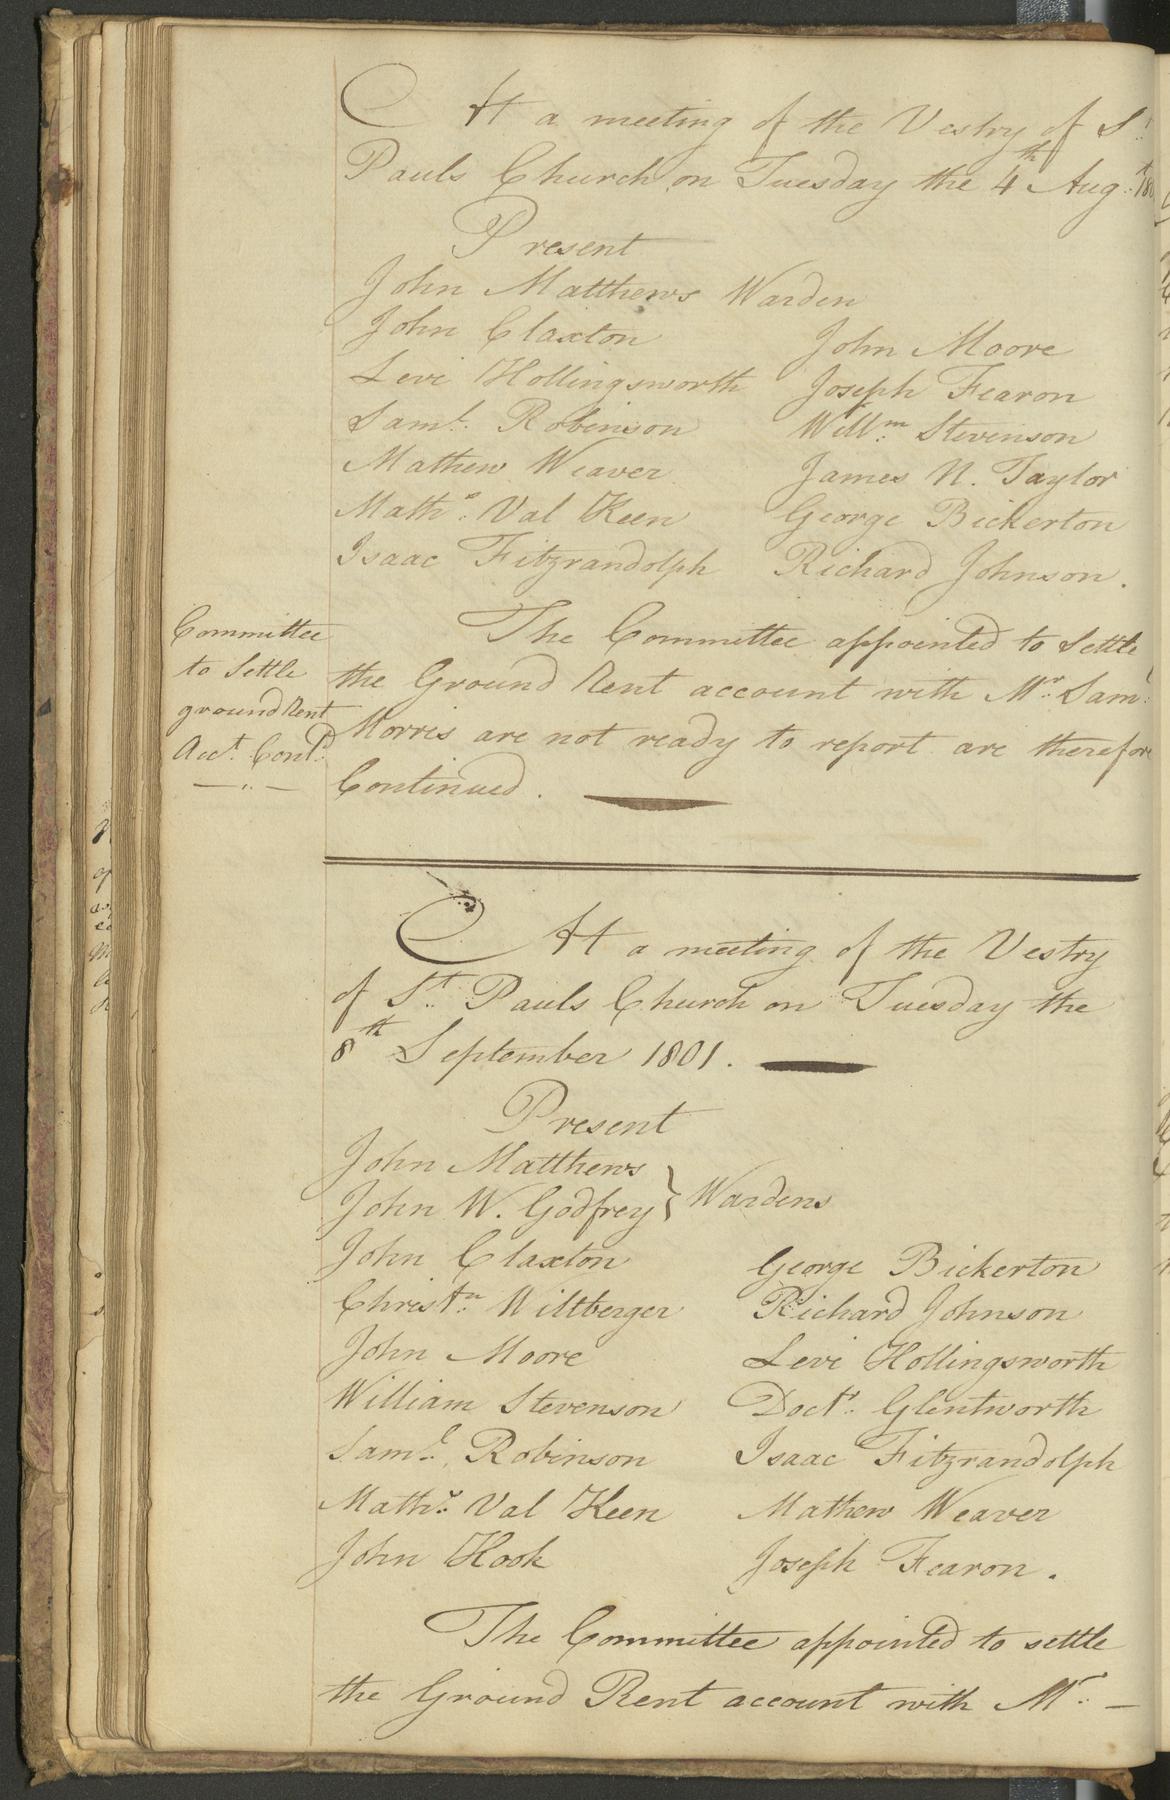 At a meeting of the Vestry of St.
Pauls Church on Tuesday the 4th Aug.t 180
Present
John Matthews Warden
John Claxton
John Moore
Levi Hollingsworth
Joseph Fearon
Saml. Robinson
Willm. Stevenson
Mathew Weaver
James N. Taylor
Maths. Val Keen
George Bickerton
Isaac Fitzrandolph
Richard Johnson.
Committee
to Settle
ground Rent
Acct. Contd.
The Committee appointed to Settle
the Ground Rent account with Mr. Saml.
Morris are not ready to report are therefore
Continued.
At a meeting of the Vestry
of St. Pauls Church on Tuesday the
8th September 1801.
Present
John Matthews
John W. Godfrey } Wardens
John Claxton
George Bickerton
Christn. Wiltberger
Richard Johnson
John Moore
Levi Hollingsworth
William Stevenson
Doctr. Glentworth
Saml. Robinson
Isaac Fitzrandolph
Maths. Val Keen
Mathew Weaver
John Hook
Joseph Fearon.
The Committee appointed to settle
the Ground Rent account with Mr. —